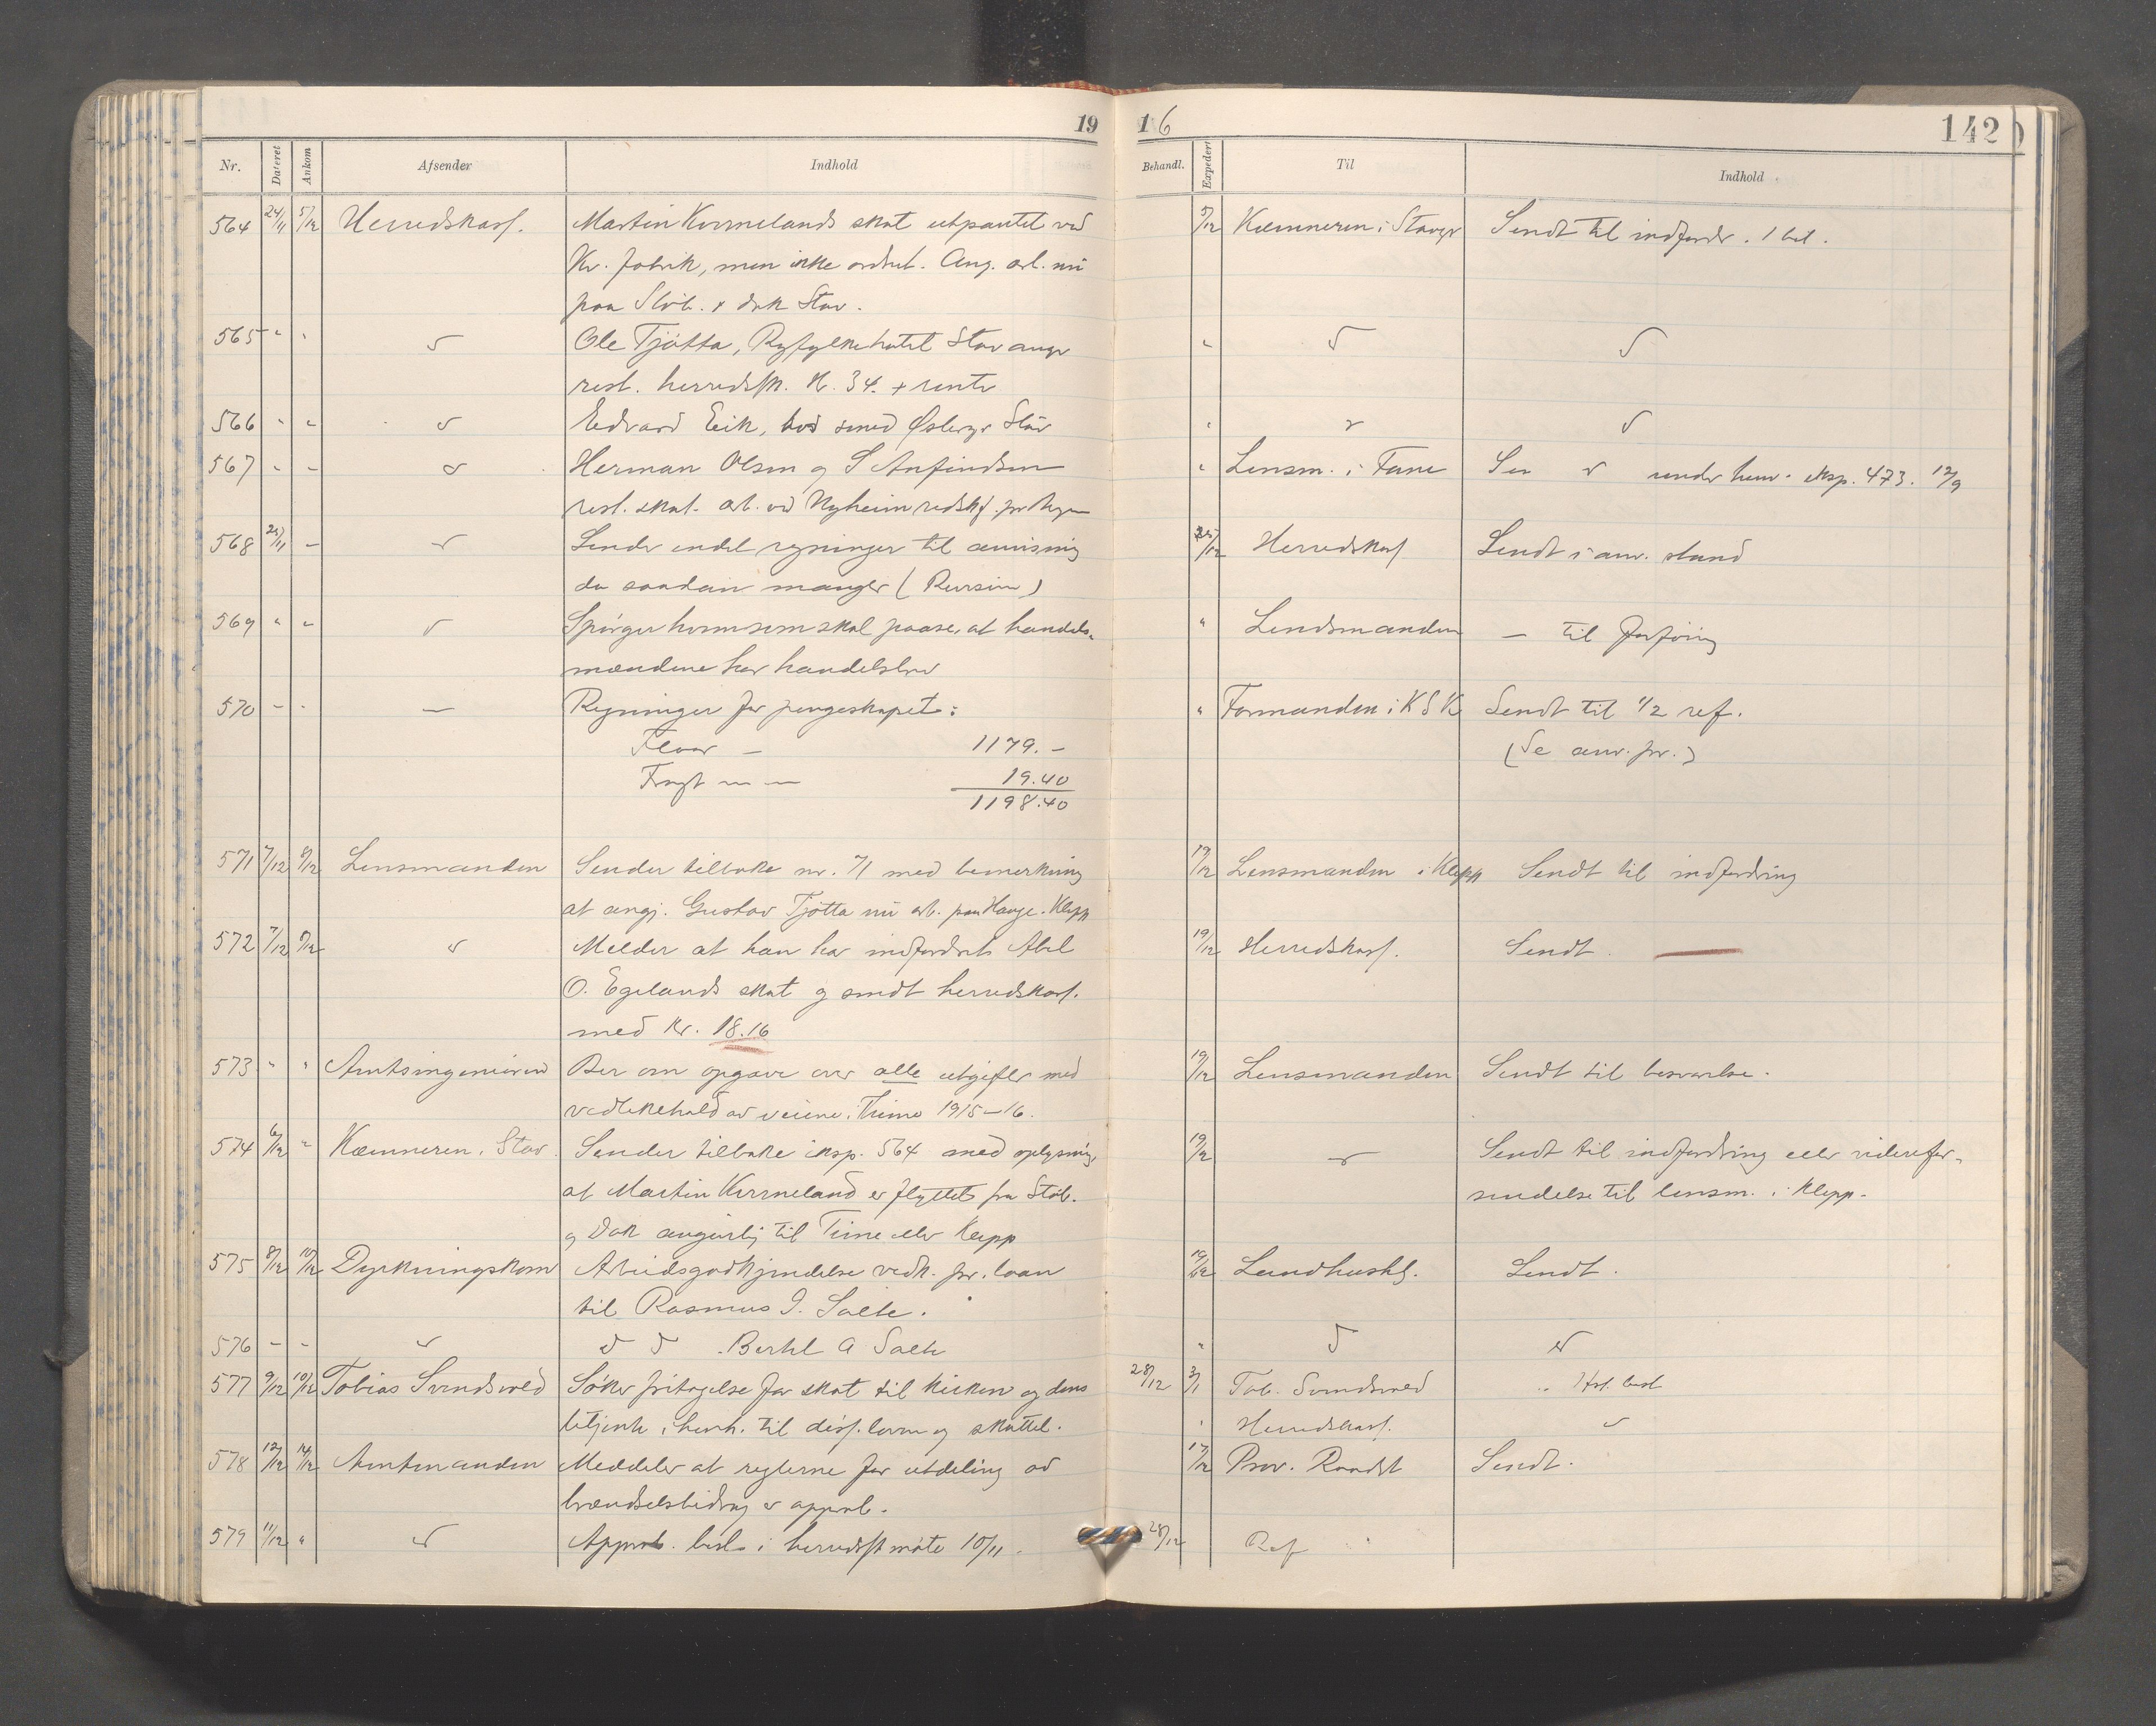 19
16
142
Nr. Dateret Ankom Afsender Indhold
Behandl. Expedert Til Indhold
564 24/11 5/12 Herredskass. Martin Kvernelands skat utpantet ved
Kv. fabrik, men ikke ordnet. Ang. arb. nu
paa Støb. & dok Stav.
5/12 Kæmneren i Stavgr Sendt til indfordr. 1 bil.
565 " " Ole Tjøtta, Ryfylkehotel Stavanger
rest. herredssk. Kr. 34. + renter
566 " " Edvard Eik, hos smed Østergr Stav
567 " " Herman Olsen og S Anfindsen
rest. skat. arb. ved Nyheim redskf. pr Bryne
" Lensm. i Time Sen under henv. eksp. 473. 12/9
568 25/11 - Sender endel regninger til anvisning
da saadan mangler (Revisin)
Herredskass Sendt i anv. stand
569 " " Spørger hvem som skal paase, at handels-
mændene har handelsbrev
" Lendsmanden — til forføing
570 - - — Regninger for pengeskapet:
— 1179.-
Fragt — — 19.40
1198.40
" Formanden i K S K Sendt til 1/2 ref.
(Se anv. pr.)
571 7/12 8/12 Lensmanden Sender tilbake nr. 71 med bemerkning
at angj. Gustav Tjøtta nu arb. paa Hauge. Klepp
19/12 Lensmanden i Klepp Sendt til indfordring
572 7/12 8/12 Melder at han har indfordret Abel
O. Egelands skat og sendt herredskass.
med kr. 18.16
19/12 Herredskass. Sendt. —
573 " " Amtsingeniøren Ber om opgave over alle utgifter med
vedlikehold av veiene i Time 1915-16.
19/12 Lensmanden Sendt til besvarelse.
574 6/12 " Kæmneren i Stav. Sender tilbake eksp. 564 med oplysning
at Martin Kverneland er flyttet fra Støb.
og Dok angivlig til Time eller Klepp
19/12 Sendt til indfordring eller viderefor-
sendelse til lensm. i Klepp.
575 8/12 10/12 Dyrkningskom Arbeidsgodkjendelse vedk. pr. laan
til Rasmus I. Salte.
19/12 Landhushs. Sendt.
576 - - Bertel A Salte
577 9/12 10/12 Tobias Svendsvold Søker fritagelse for skat til kirken og dens
betjente i henh. til diss. loven og skattel.
28/12 3/1 Tob. Svendsvold Hst. besl.
" Herredskass.
578 12/12 14/12 Amtmanden Meddeler at reglerne for utdeling av
brændselsbidrag er approb.
17/12 Prov. Raadet Sendt.
579 11/12 " Approb. besl. i herredsst møte 10/11.
28/12 Ref